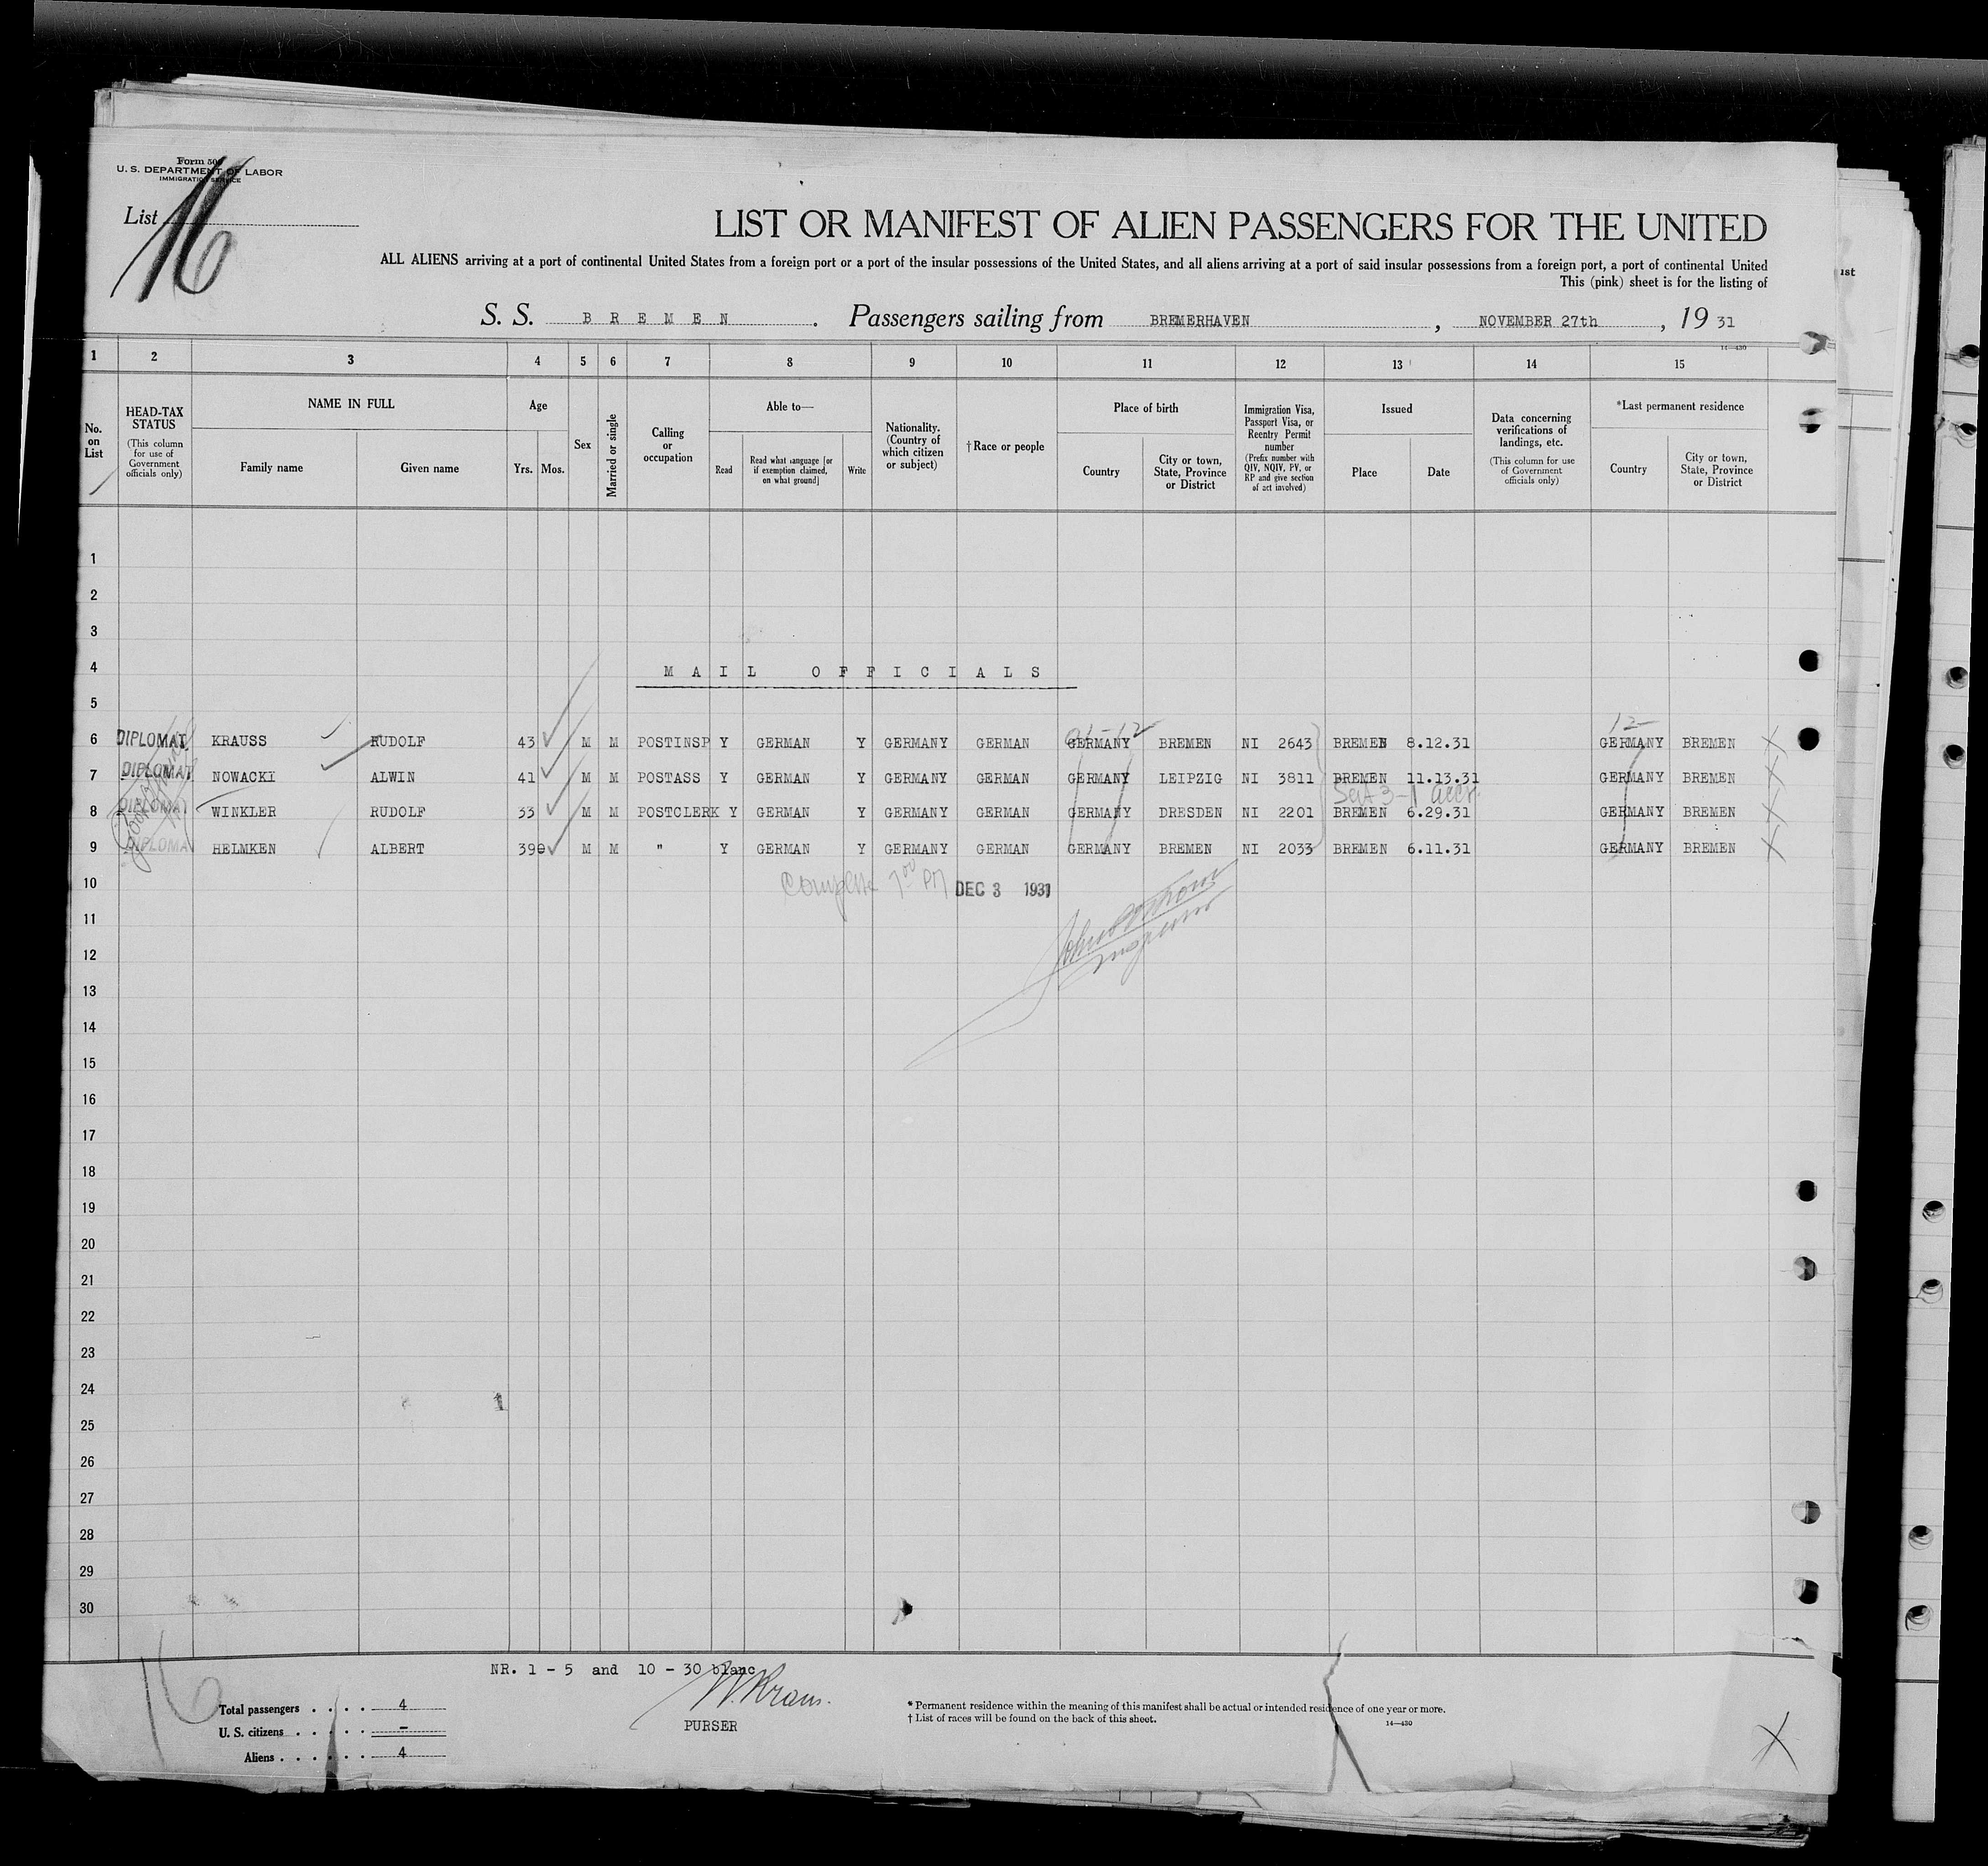 Form 500
U. S. DEPARTMENT OF LABOR
IMMIGRATION SERVICE
List 16
LIST OR MANIFEST OF ALIEN PASSENGERS FOR THE UNITED
ALL ALIENS arriving at a port of continental United States from a foreign port or a port of the insular possessions of the United States, and all aliens arriving at a port of said insular possessions from a foreign port, a port of continental United
This (pink) sheet is for the listing of
S. S. BREMEN. Passengers sailing from BREMERHAVEN, NOVEMBER 27th, 19 31
14—430
1 2 3 4 5 6 7 8 9 10 11 12 13 14 15
No. on List
HEAD-TAX STATUS (This column for use of Government officials only)
NAME IN FULL
Family name
Given name
Age
Yrs. Mos.
Sex
Married or single
Calling or occupation
Able to—
Read
Read what language [or if exemption claimed, on what ground]
Write
Nationality. (Country of which citizen or subject)
†Race or people
Place of birth
Country
City or town, State, Province or District
Immigration Visa, Passport Visa, or Reentry Permit number (Prefix number with QIV, NQIV, PV, or RP and give section of act involved)
Issued
Place
Date
Data concerning verifications of landings, etc. (This column for use of Government officials only)
*Last permanent residence
Country
City or town, State, Province or District
1
2
3
4 MAIL OFFICIALS
5
12
6 DIPLOMAT KRAUSS RUDOLF 43 M M POSTINSP Y GERMAN Y GERMANY GERMAN GERMANY BREMEN NI 2643 BREMEN 8.12.31 GERMANY BREMEN
7 DIPLOMAT NOWACKI ALWIN 41 M M POSTASS Y GERMAN Y GERMANY GERMAN GERMANY LEIPZIG NI 3811 BREMEN 11.13.31 GERMANY BREMEN
Sect 3-1
8 DIPLOMAT WINKLER RUDOLF 33 M M POSTCLERK Y GERMAN Y GERMANY GERMAN GERMANY DRESDEN NI 2201 BREMEN 6.29.31 GERMANY BREMEN
9 DIPLOMA HELMKEN ALBERT 390 M M " Y GERMAN Y GERMANY GERMAN GERMANY BREMEN NI 2033 BREMEN 6.11.31 GERMANY BREMEN
10 Complete 7 00 PM DEC 3 1931
11
Inspector
12
13
14
15
16
17
18
19
20
21
22
23
24
25
26
27
28
29
30
NR. 1 - 5 and 10 - 30 blanc
16
Total passengers 4
U. S. citizens –
Aliens 4
PURSER
* Permanent residence within the meaning of this manifest shall be actual or intended residence of one year or more.
† List of races will be found on the back of this sheet.
14—430